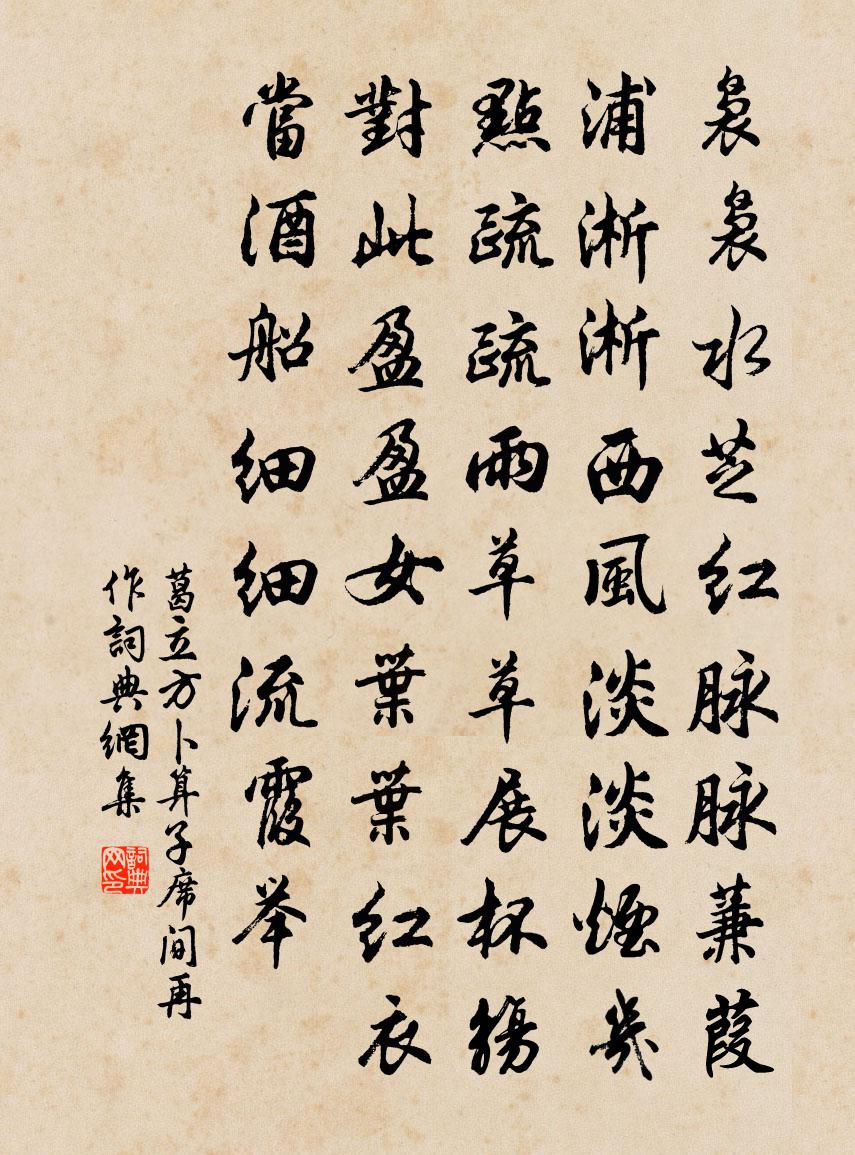 裊裊水芝紅脉脉蒹葭
浦淅淅西風淡淡煙幾
點疏疏雨草草展杯觴
對此盈盈女葉葉紅衣
當酒船細細流霞举
葛立方卜算子席間再
作詞典網集
詞典网印